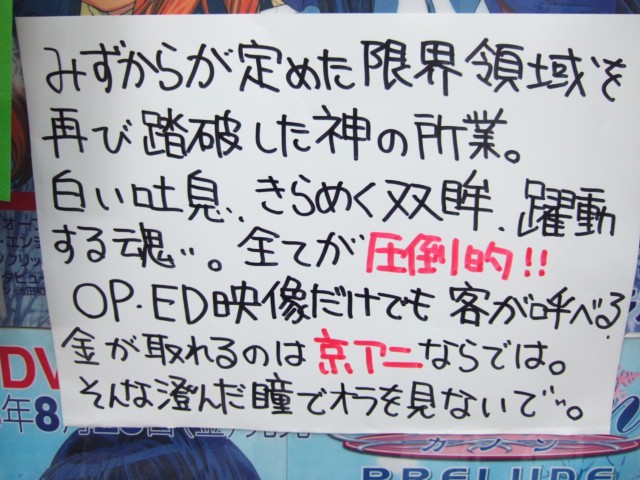 みずからが定めた限界領域を
再び踏破した神の所業。
白い吐息、きらめく双眸、躍動
する魂…。全てが圧倒的!!
OP・ED映像だけでも客が呼べる
金が取れるのは京アニならでは。
そんな澄んだ瞳でオラを見ないで…。
DV
年8月
カノン
PRELUDE